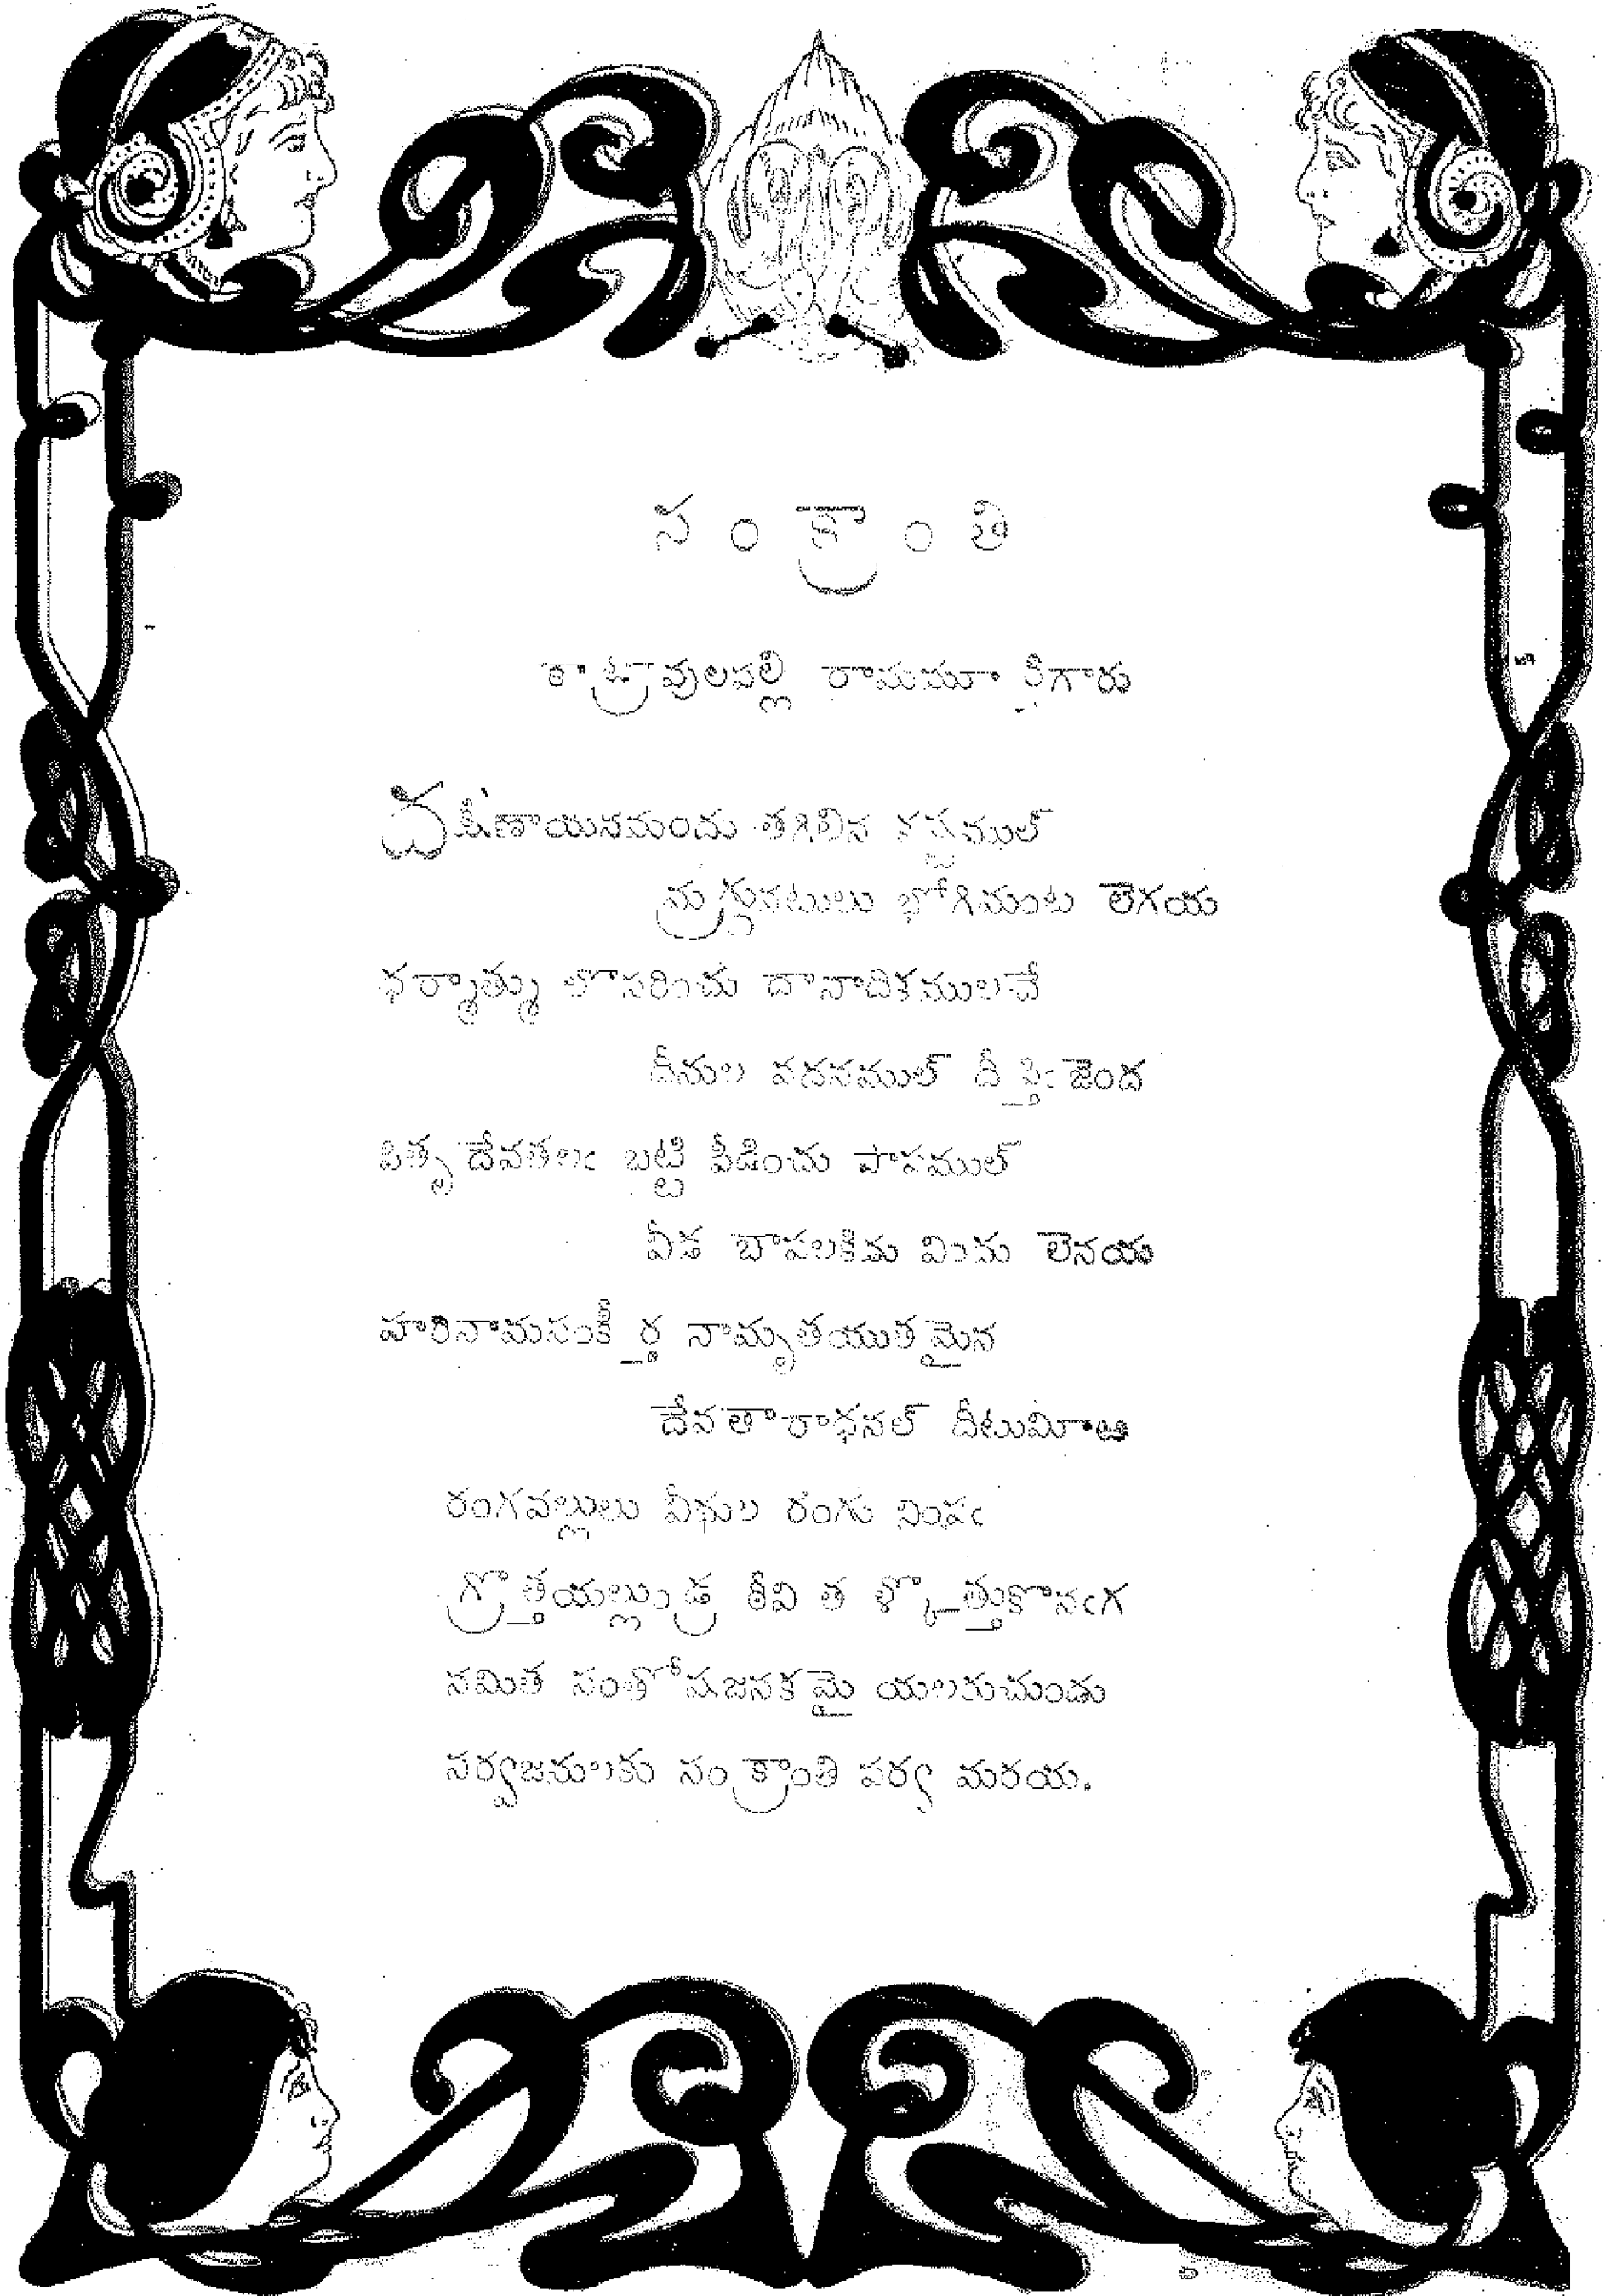 సంక్రాంతి
కాట్రావులపల్లి రామమూర్తిగారు
దక్షిణాయినమందు తగిలిన కష్టముల్
మ్రగ్గునటులు భోగిమంట లెగయ
ధర్మాత్ము లొసరించు దానాదికములచే
దీనుల వదనముల్ దీప్తిఁ జెంద
పితృదేవతలఁ బట్టి పీడించు పాపముల్
వీడ బాపలకిడు విందు లెనయ
హరినామసంకీర్త నామృతయుతమైన
దేవతారాధనల్ దీటుమీఱ
రంగవల్లులు వీధుల రంగు నింపఁ
గ్రొత్తయల్లుండ్ర ఠీవి త ళ్కొత్తుకొనఁగ
నమిత సంతోషజనకమై యలరుచుండు
సర్వజనులకు సంక్రాంతి పర్వ మరయ.